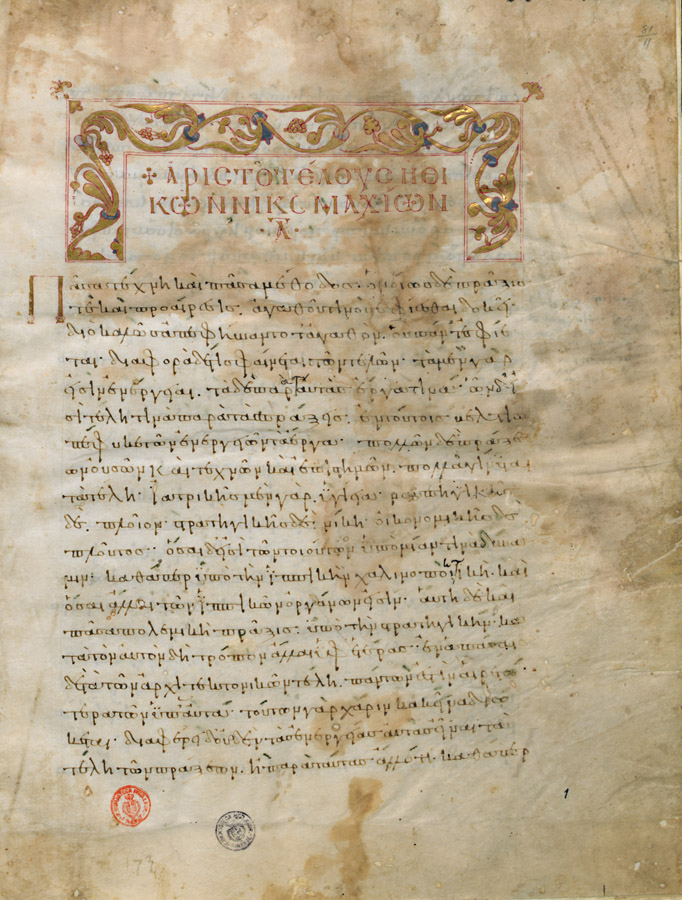 81
11
✢ ΑΡΙΣΤΟΤΕΛΟΥΣ ΗΘΙ
ΚΩΝ ΝΙΚΟΜΑΧΙΩΝ
·Α·
Πᾶσα τέχνη καὶ πᾶσα μέθοδος· ὁμοίως δὲ πρᾶξίς
τε καὶ προαίρεσις· ἀγαθοῦ τινὸς ἐφίεσθαι δοκεῖ·
διὸ καλῶς ἀπεφήναντο τἀγαθὸν· οὗ πάντα ἐφίε
ται· διαφορὰ δέ τις φαίνεται τῶν τελῶν· τὰ μὲν γάρ
εἰσιν ἐνέργειαι· τὰ δὲ παρ' αὐτὰς ἔργα τινά· ὧν δ' εἰ
σὶ τέλη τινὰ παρὰ τὰς πράξεις· ἐν τούτοις βελτίω
πέφυκε τῶν ἐνεργειῶν τὰ ἔργα· πολλῶν δὲ πράξε
ων οὐσῶν καὶ τεχνῶν καὶ ἐπιστημῶν· πολλὰ γίνεται
τὰ τέλη· ἰατρικῆς μὲν γὰρ ὑγίεια· ναυπηγικῆς
δὲ· πλοῖον· στρατηγικῆς δὲ· νίκη· οἰκονομικῆς δὲ
πλοῦτος· ὅσαι δ' εἰσὶ τῶν τοιούτων ὑπὸ μίαν τινὰ δύνα
μιν· καθάπερ ὑπὸ τὴν ἱππικὴν χαλινοποιητικὴ· καὶ
ὅσαι ἄλλαι τῶν ἱππικῶν ὀργάνων εἰσίν· αὕτη δὲ καὶ
πᾶσα πολεμικὴ πρᾶξις· ὑπὸ τὴν στρατηγικήν· κα
τὰ τὸν αὐτὸν δὴ τρόπον ἄλλαι ὑφ' ἑτέρας· ἐν ἁπάσαις
δὲ τὰ τῶν ἀρχιτεκτονικῶν τέλη· πάντων ἐστὶν αἱρετώ
τερα τῶν ὑπ' αὐτά· τούτων γὰρ χάριν κἀκεῖνα διώ
κεται· διαφέρει δ' οὐδὲν τὰς ἐνεργείας αὐτὰς εἶναι τὰ
τέλη τῶν πράξεων· ἢ παρὰ ταύτας ἄλλό τι· καθάπερ
1
173